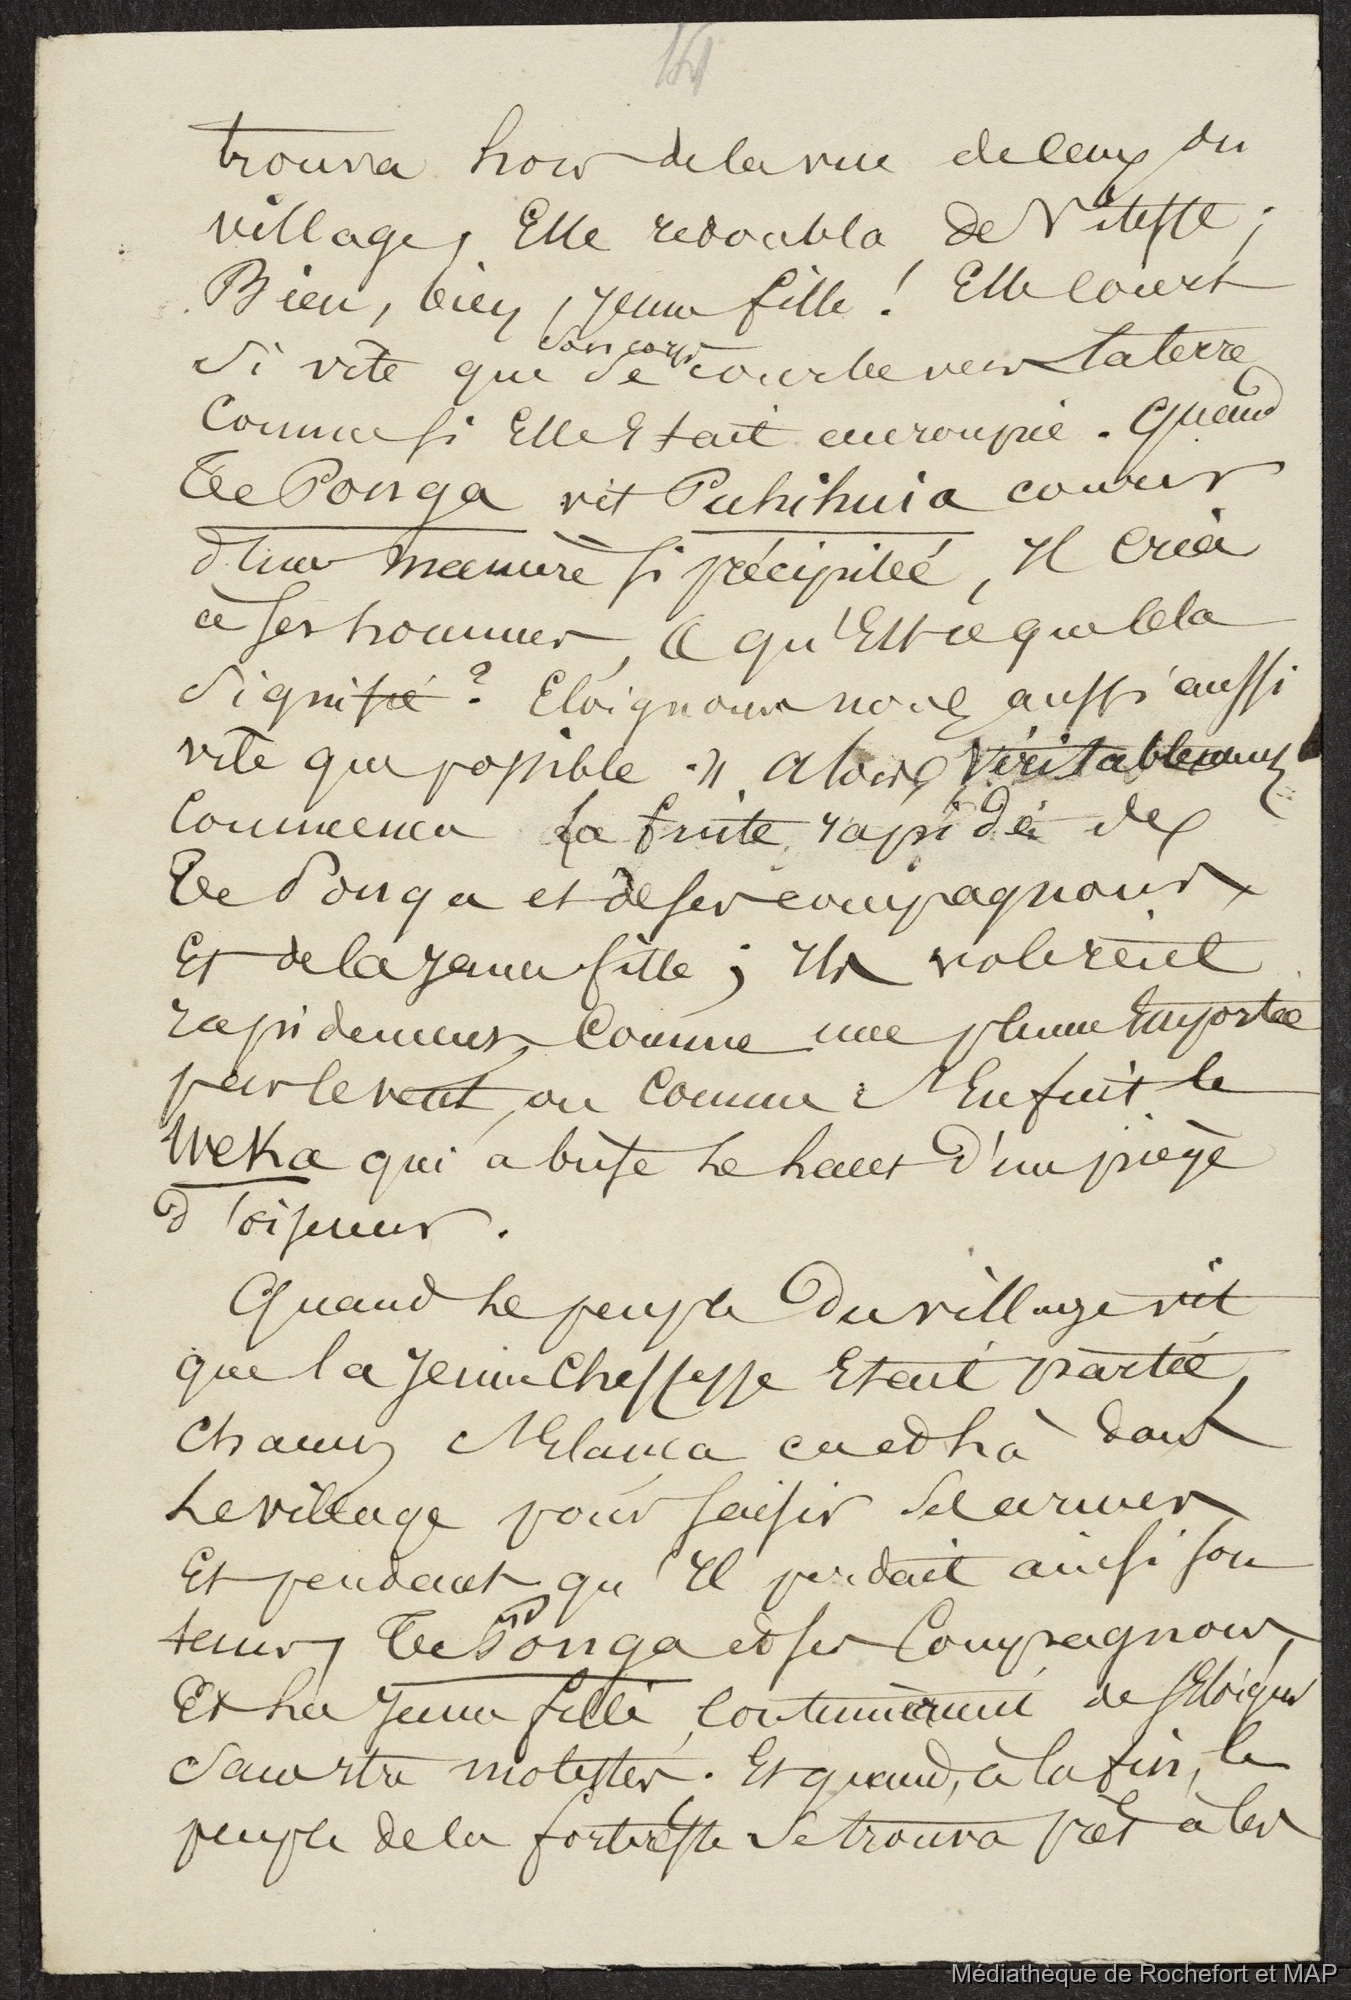 14
trouva hors de la vue de ceux du
village, Elle redoubla de Vitesse ;
Bien, bien, jeune fille ! Elle court
si vite que son corps se courbe vers la terre
comme si Elle Etait accroupie. Quand
Te Ponga vit Puhihuia courir
d'une manière si précipitée, Il cria
à ses hommes, « qu'Est-ce que cela
signifie ? Eloignons nous aussi aussi
vite que possible. » Alors, véritablement
commença la fuite rapide de
Te Ponga et de ses compagnons
Et de la jeune fille ; Ils volèrent
rapidement, Comme une plume Emportée
par le vent, ou Comme s'Enfuit le
Weka qui a brisé le lacet d'un piège
d'oiseleur.
Quand le peuple Du village vit
que la jeune Cheffesse Etait partie,
chacun s'Elança çà et là dans
le village pour saisir ses armes,
Et pendant qu'Il perdait ainsi son
temps, Te Ponga et ses Compagnons,
Et la jeune fille, continuèrent de s'Eloigner
sans être molestés. Et quand, à la fin, le
peuple de la forteresse se trouva prêt à les
Médiathèque de Rochefort et MAP